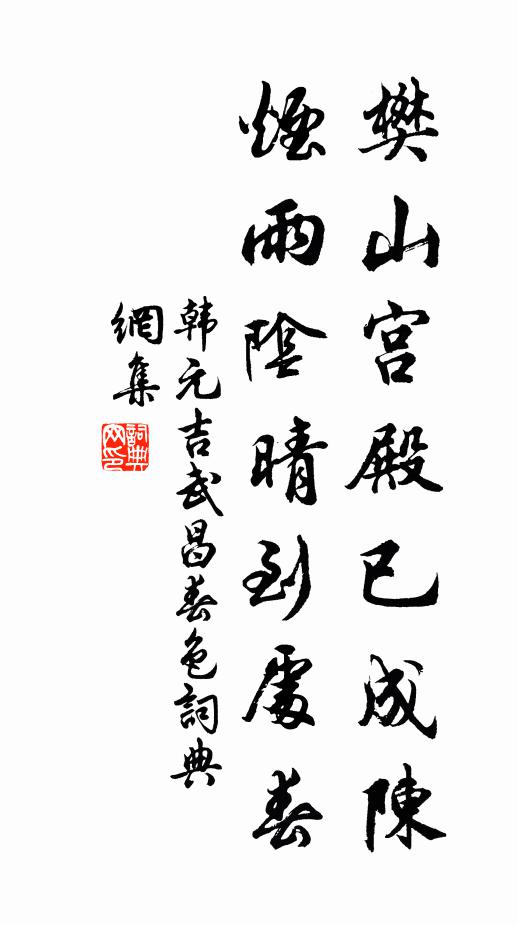 樊山宫殿已成陳
煙雨陰晴到處春
韩元吉武昌春色詞典
網集
詞典网印